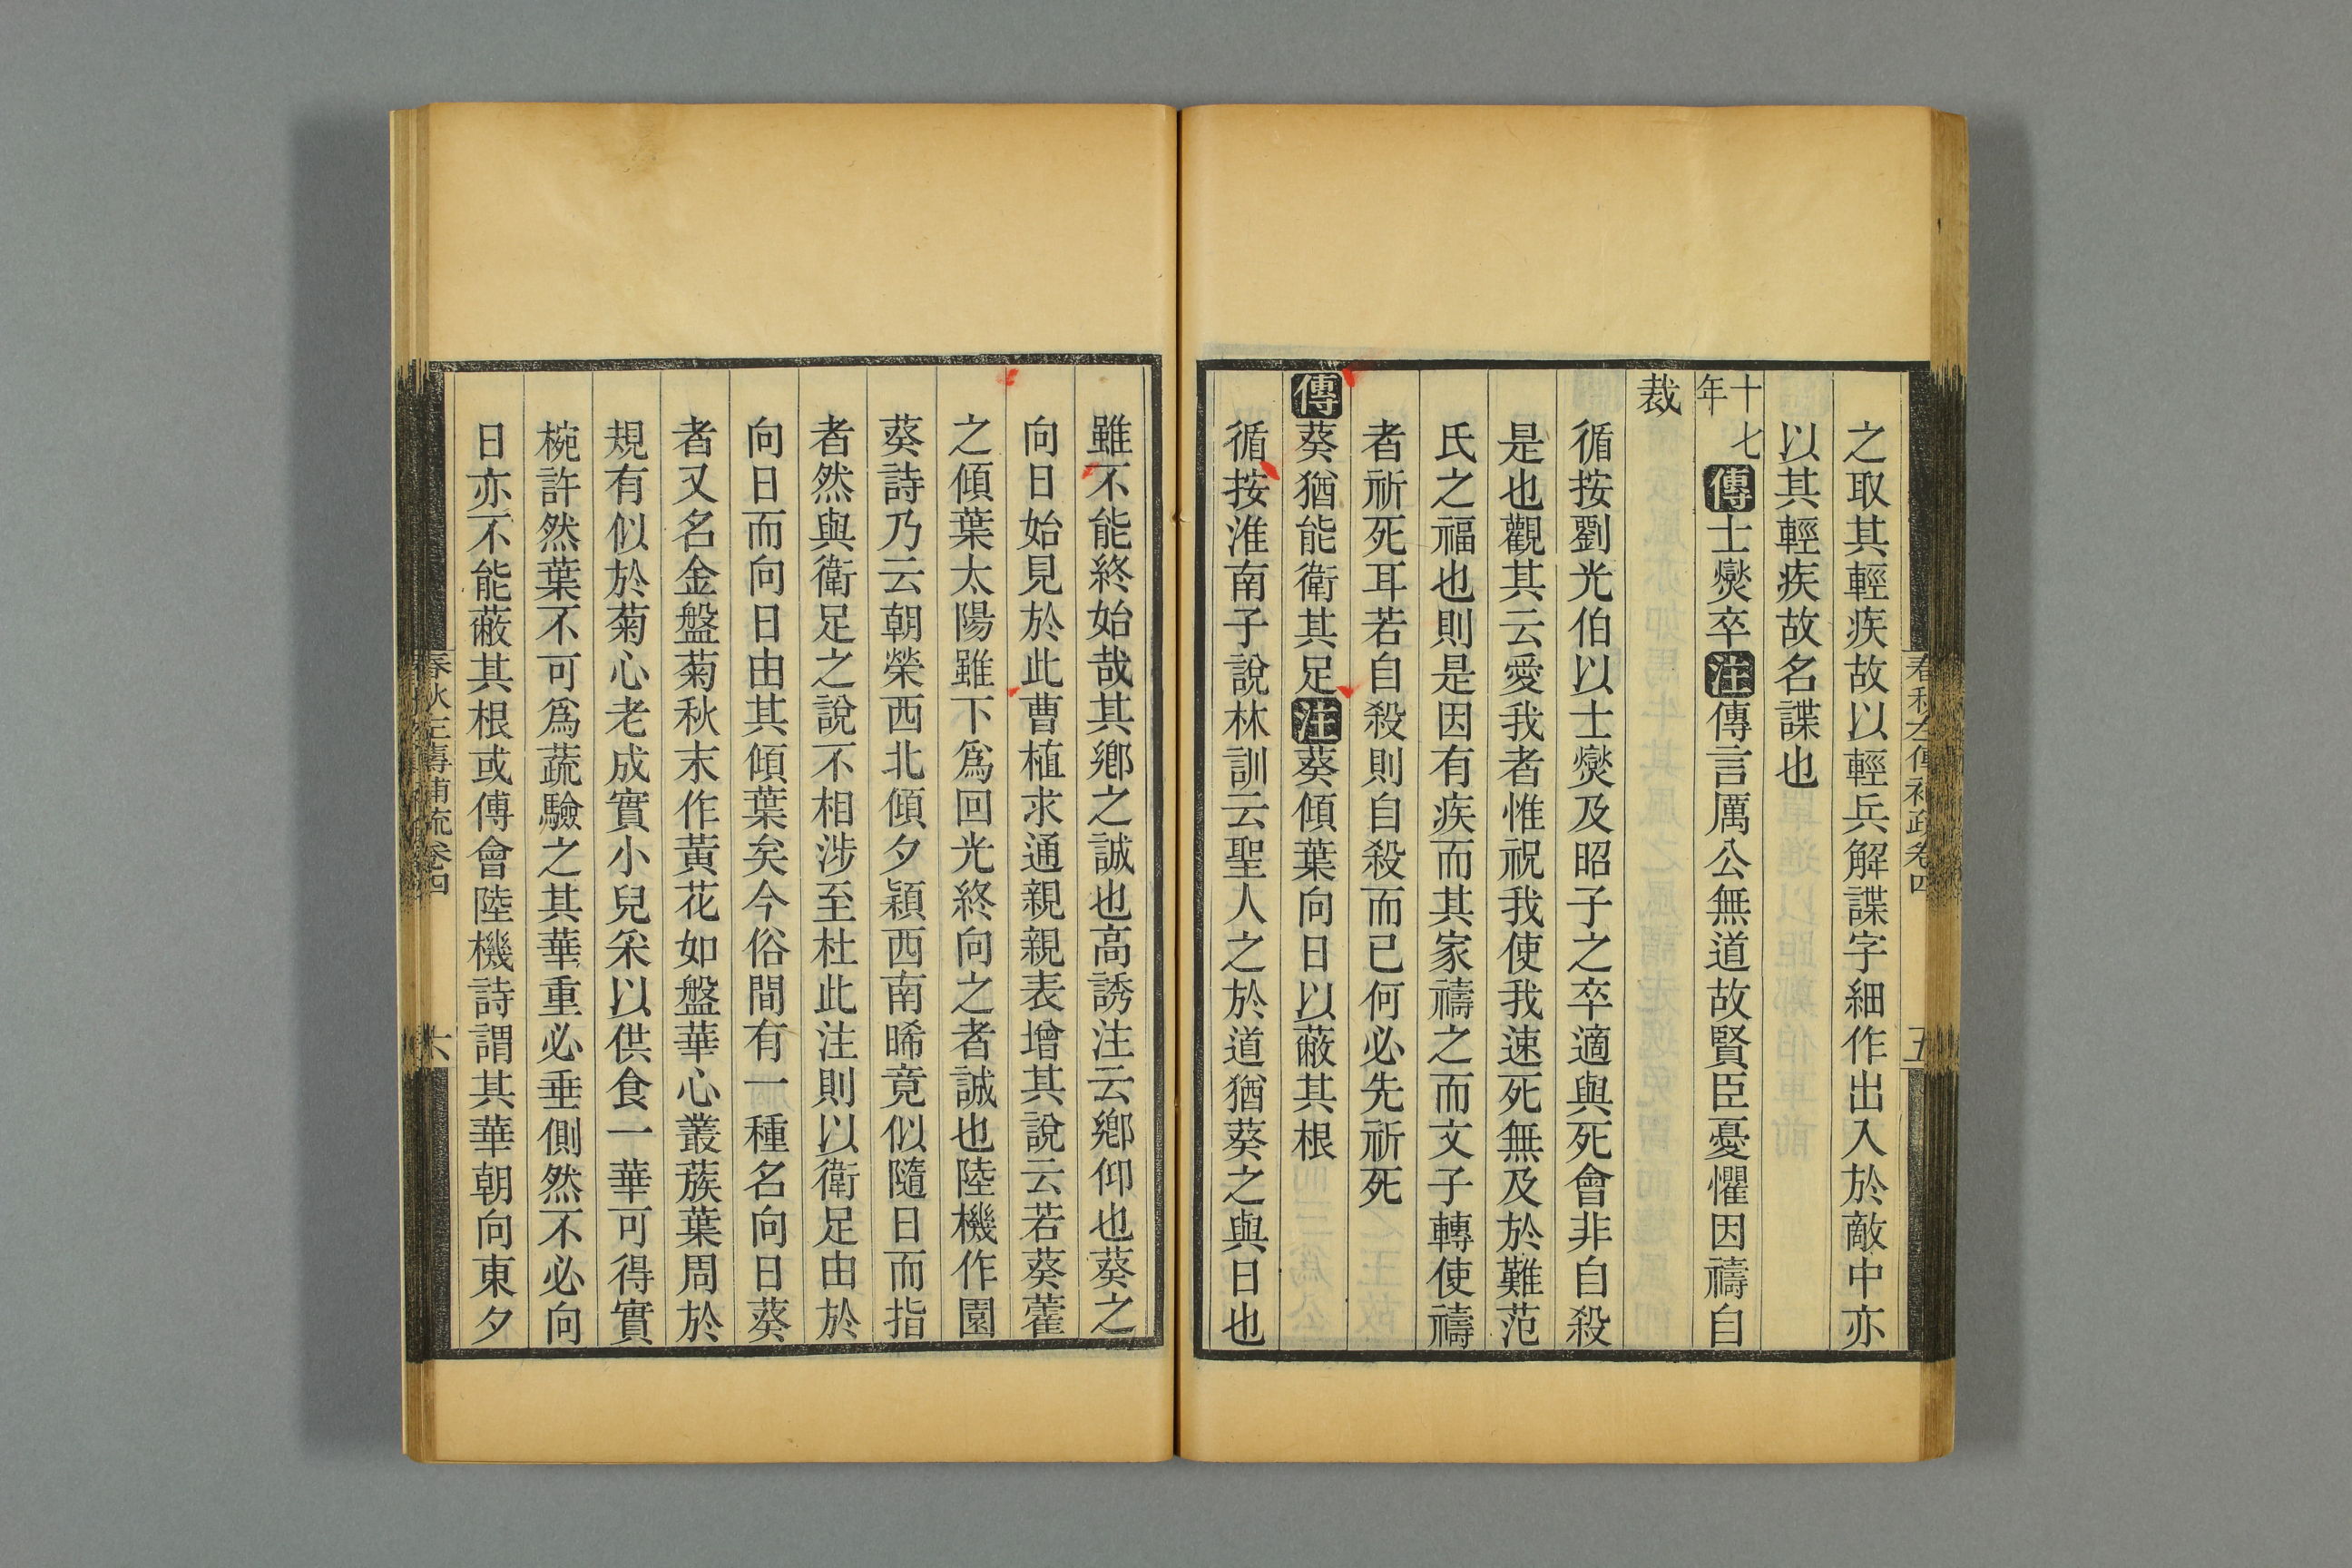 之取其輕疾故以輕兵解諜字細作出入於敵中亦
以其輕疾故名諜也
十七年傳士燮卒注傳言厲公無道故賢臣憂懼因禱自
裁
循按劉光伯以士燮及昭子之卒適與死會非自殺
是也觀其云愛我者惟祝我使我速死無及於難范
氏之福也則是因有疾而其家禱之而文子轉使禱
者祈死耳若自殺則自殺而已何必先祈死
傳葵猶能衛其足注葵傾葉向日以蔽其根
循按淮南子說林訓云聖人之於道猶葵之與日也
雖不能終始哉其鄉之誠也高誘注云鄉仰也葵之
向日始見於此曹植求通親親表增其說云若葵藿
之傾葉太陽雖下爲回光終向之者誠也陸機作園
葵詩乃云朝榮西北傾夕穎西南晞竟似隨日而指
者然與衛足之說不相涉至杜此注則以衛足由於
向日而向日由其傾葉矣今俗間有一種名向日葵
者又名金盤菊秋末作黃花如盤華心叢蔟葉周於
規有似於菊心老成實小兒采以供食一華可得實
椀許然葉不可爲蔬驗之其華重必垂側然不必向
日亦不能蔽其根或傅會陸機詩謂其華朝向東夕
春秋左傳補疏卷四
六